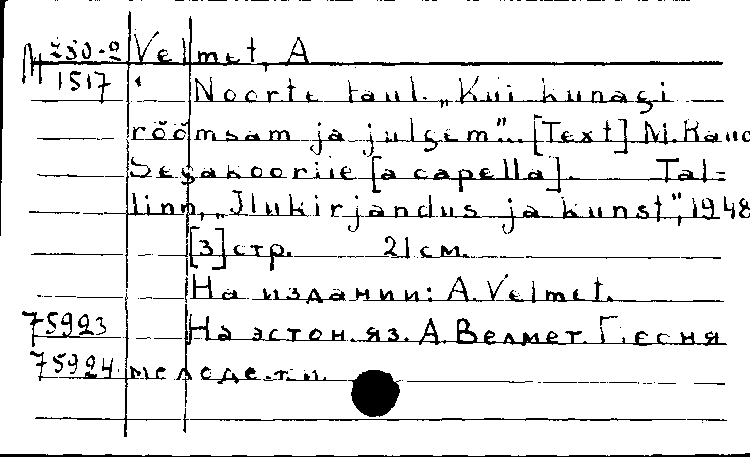 М 250-2 Velmet, A
1517 Noorte laul. „Kui kunagi
rõõmsam ja julgem"... [Text] M. Raud
Segakoorile [a capella]. Tal=
linn, „Ilukirjandus ja kunst", 1948
[3] стр. 21 см.
На издании: A. Velmet.
75923 На эстон. яз. А. Велмет. Песня
75924 молодежи.